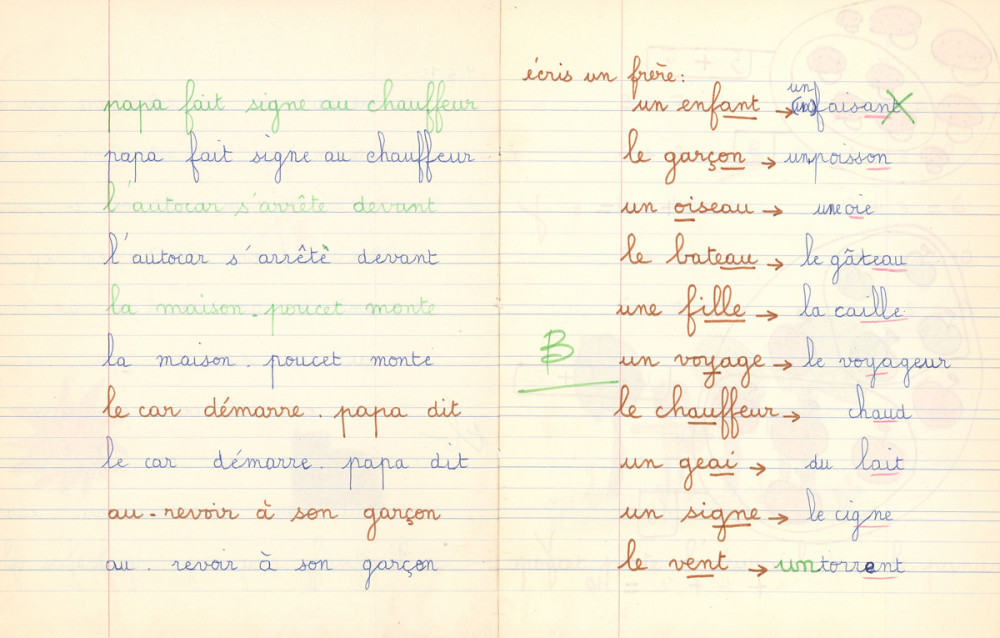 papa fait signe au chauffeur
papa fait signe au chauffeur
l'autocar s'arrête devant
l'autocar s'arrêtè devant
la maison. poucet monte
la maison. poucet monte
le car démarre. papa dit
le car démarre. papa dit
au-revoir à son garçon
au. revoir à son garçon
écris un frère:
un enfant → un faisant
le garçon → un poisson
un oiseau → une oie
le bateau → le gâteau
une fille → la caille
B
un voyage → le voyageur
le chauffeur → chaud
un geai → du lait
un signe → le cigne
le vent → un torrent